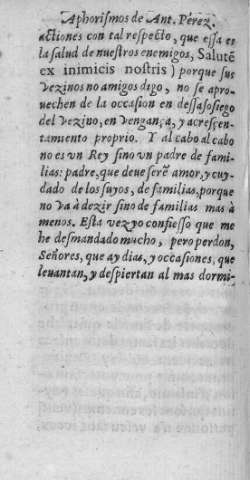 Aphorismos de Ant. Pérez.
actiones con tal respecto, que essa es
la salud de nuestros enemigos, Salutẽ
ex inimicis nostris) porque sus
vezinos no amigos digo, no se apro-
uechen de la occasion en dessasosiego
del vezino, en vengança, y acresçen-
tamiento proprio. Y al cabo al cabo
no es vn Rey sino vn padre de fami-
lias: padre, que deue ser ẽ amor, y cuy-
dado de los suyos, de familias, porque
no va à dezir sino de familias mas à
menos. Esta vez yo confiesso que me
he desmandado mucho, pero perdon,
Señores, que ay dias, y occasiones, que
leuantan, y despiertan al mas dormi-